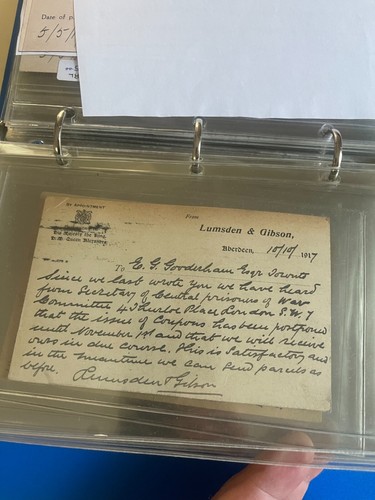 Date of p
5/5/1
BY APPOINTMENT
His Majesty the King.
H.M. Queen Alexandra
From
Lumsden & Gibson,
Aberdeen, 10/10/1917
To E. G. Gooderham Esqr Toronto
Since we last wrote you we have heard
from Secretary of Central prisoners of War
Committee 4 Thurloe Place London S.W. 7
that the issue of Coupons has been postponed
until November 1st and that we will receive
ours in due course. This is Satisfactory and
in the meantime we can send parcels as
before.
Lumsden & Gibson